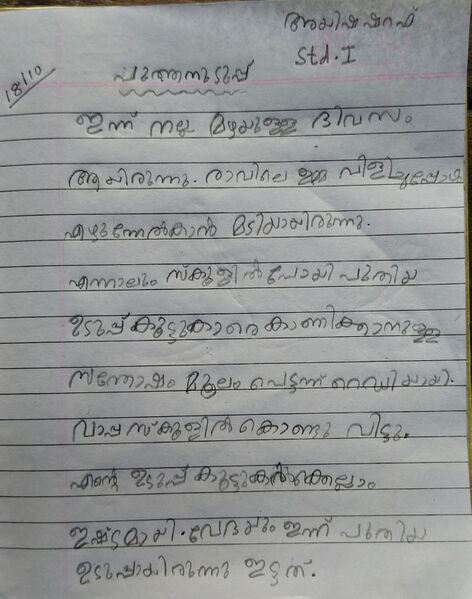 അയിഷ ഷറഫ്
Std. I
18/10
പുത്തനുടുപ്പ്
ഇന്ന് നല്ല മഴയുള്ള ദിവസം
ആയിരുന്നു. രാവിലെ ഉമ്മ വിളിച്ചപ്പോൾ
എഴുന്നേൽകാൻ മടിയായിരുന്നു.
എന്നാലും സ്കൂളിൽ പോയി പുതിയ
ഉടുപ്പ് കൂട്ടുകാരെ കാണിക്കാനുള്ള
സന്തോഷം മൂലം പെട്ടന്ന് റെഡിയായി.
വാപ്പ സ്കൂളിൽ കൊണ്ടു വിട്ടു.
എന്റെ ഉടുപ്പ് കൂട്ടുകാർക്കെല്ലാം
ഇഷ്ടമായി. വേദയും ഇന്ന് പുതിയ
ഉടുപ്പായിരുന്നു ഇട്ടത്.